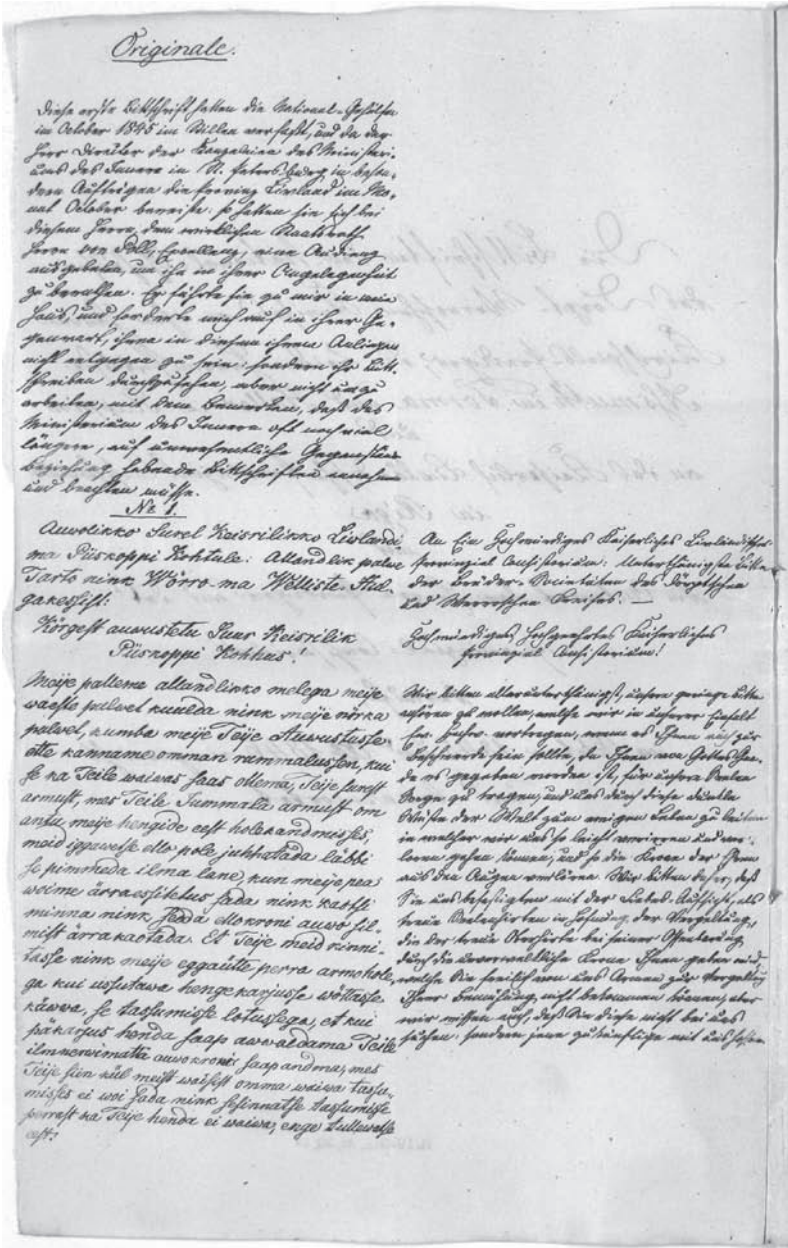 Originale.
Diese erste Bittschrift hatten die National-Gehülfen
im October 1845 im Stillen verfaßt, und da der
Herr Director der Kanzelei des Ministeri-
ums des Innern in St. Petersburg in beson-
dern Aufträgen die Provinz Livland im Mo-
nat October bereiste: so hatten sie sich bei
diesem Herrn, dem wirklichen Staatsrath
Herrn von Excellenz, eine Audienz
ausgebeten, um ihn in ihrer Angelegenheit
zu berathen. Er führte sie zu mir in mein
Haus, und forderte mich auf in ihrer Ge-
genwart, ihnen in diesem ihrem Anliegen
nicht entgegen zu sein: sondern ihr Bitt-
schreiben durchzusehen, aber nicht umzu
arbeiten, mit dem Bemerken, daß das
Ministerium des Innern oft noch viel
längere, auf unwesentliche Gegenstände
Beziehung habende Bittschriften annehmen
und beachten müsse.
No 1.
Auwolikko Surel Keisrilikko Liwlandi
ma Piiskoppi Kohtule: Allandlik palwe
Tarto nink Wörro-ma Welliste Hul-
gakessist:
Körgest auwustetu Suur Keisrilik
Piiskoppi Kohhus!
Meije palleme allandlikko melega meije
waeste palwet kuulda nink meije nörka
palwet, kumba meije Teije Auwustusse
ette kanname omman rummalussen, kui
se ka Teile waiwas saas ollema, Teije surest
armust, mes Teile Jummala armust om
antu meije hengide eest holekandmisses,
meid iggawetse ello pole juhhatada läbbi
se pimmeda ilma lane, kun meije pea
woime ärraessitetus sada nink kaotsi
minna nink seda ellokroni auwo sil-
mist ärrakaotada. Et Teije meid kinni-
tasse nink meije eggaütte perra armohole,
ga kui ussutawa hengekarjusse wöttasse
käwwa, se tassumisse lotussega, et kui
päkarjus henda saap awwaldama Teile
ilmnerwimata auwokroni saap andma, mes
Teije siin kül meist waisist omma waiwa tassu-
misses ei woi sada nink sesinnatse tassumisse
perrast ka Teije henda ei waiwa, enge tullewatse
eest.
An Ein Hochwürdiges Kaiserliches Livländisches
Provinzial Consistorium: Unterthänigste Bitte
der Brüder-Societäten des Dörptschen
und Werroschen Kreises. —
Hochwürdiges Hochgeehrtes Kaiserliches
Provinzial Consistorium!
Wir bitten allerunterthänigst, unsere geringe Bitte
anhören zu wollen, welche wir in unserer Einfalt
vortragen, wenn es Ihnen auch zur
Beschwerde sein sollte, da Ihnen von Gottes Gna-
de es gegeben worden ist, für unsere Seelen
Sorge zu tragen, und uns durch diese dunkle
Wüste der Welt zum ewigen Leben zu leiten
in welcher wir uns so leicht verirren und ver-
loren gehen können, und so die Krone der Ehren
aus den Augen verlieren. Wir bitten daher, daß
Sie uns befestigten mit der Liebes-Aufsicht, als
treue Seelenhirten in Hofnung der Vergeltung,
die der treue Oberhirte bei seiner Offenbarung
durch die unverwelkliche Krone Ihnen geben wird
welche Sie freilich von uns Armen zur Vergeltung
Ihrer Bemühung, nicht bekommen können, aber
wir wissen auch, daß Sie diese nicht bei uns
suchen: sondern jene zukünftige mit uns